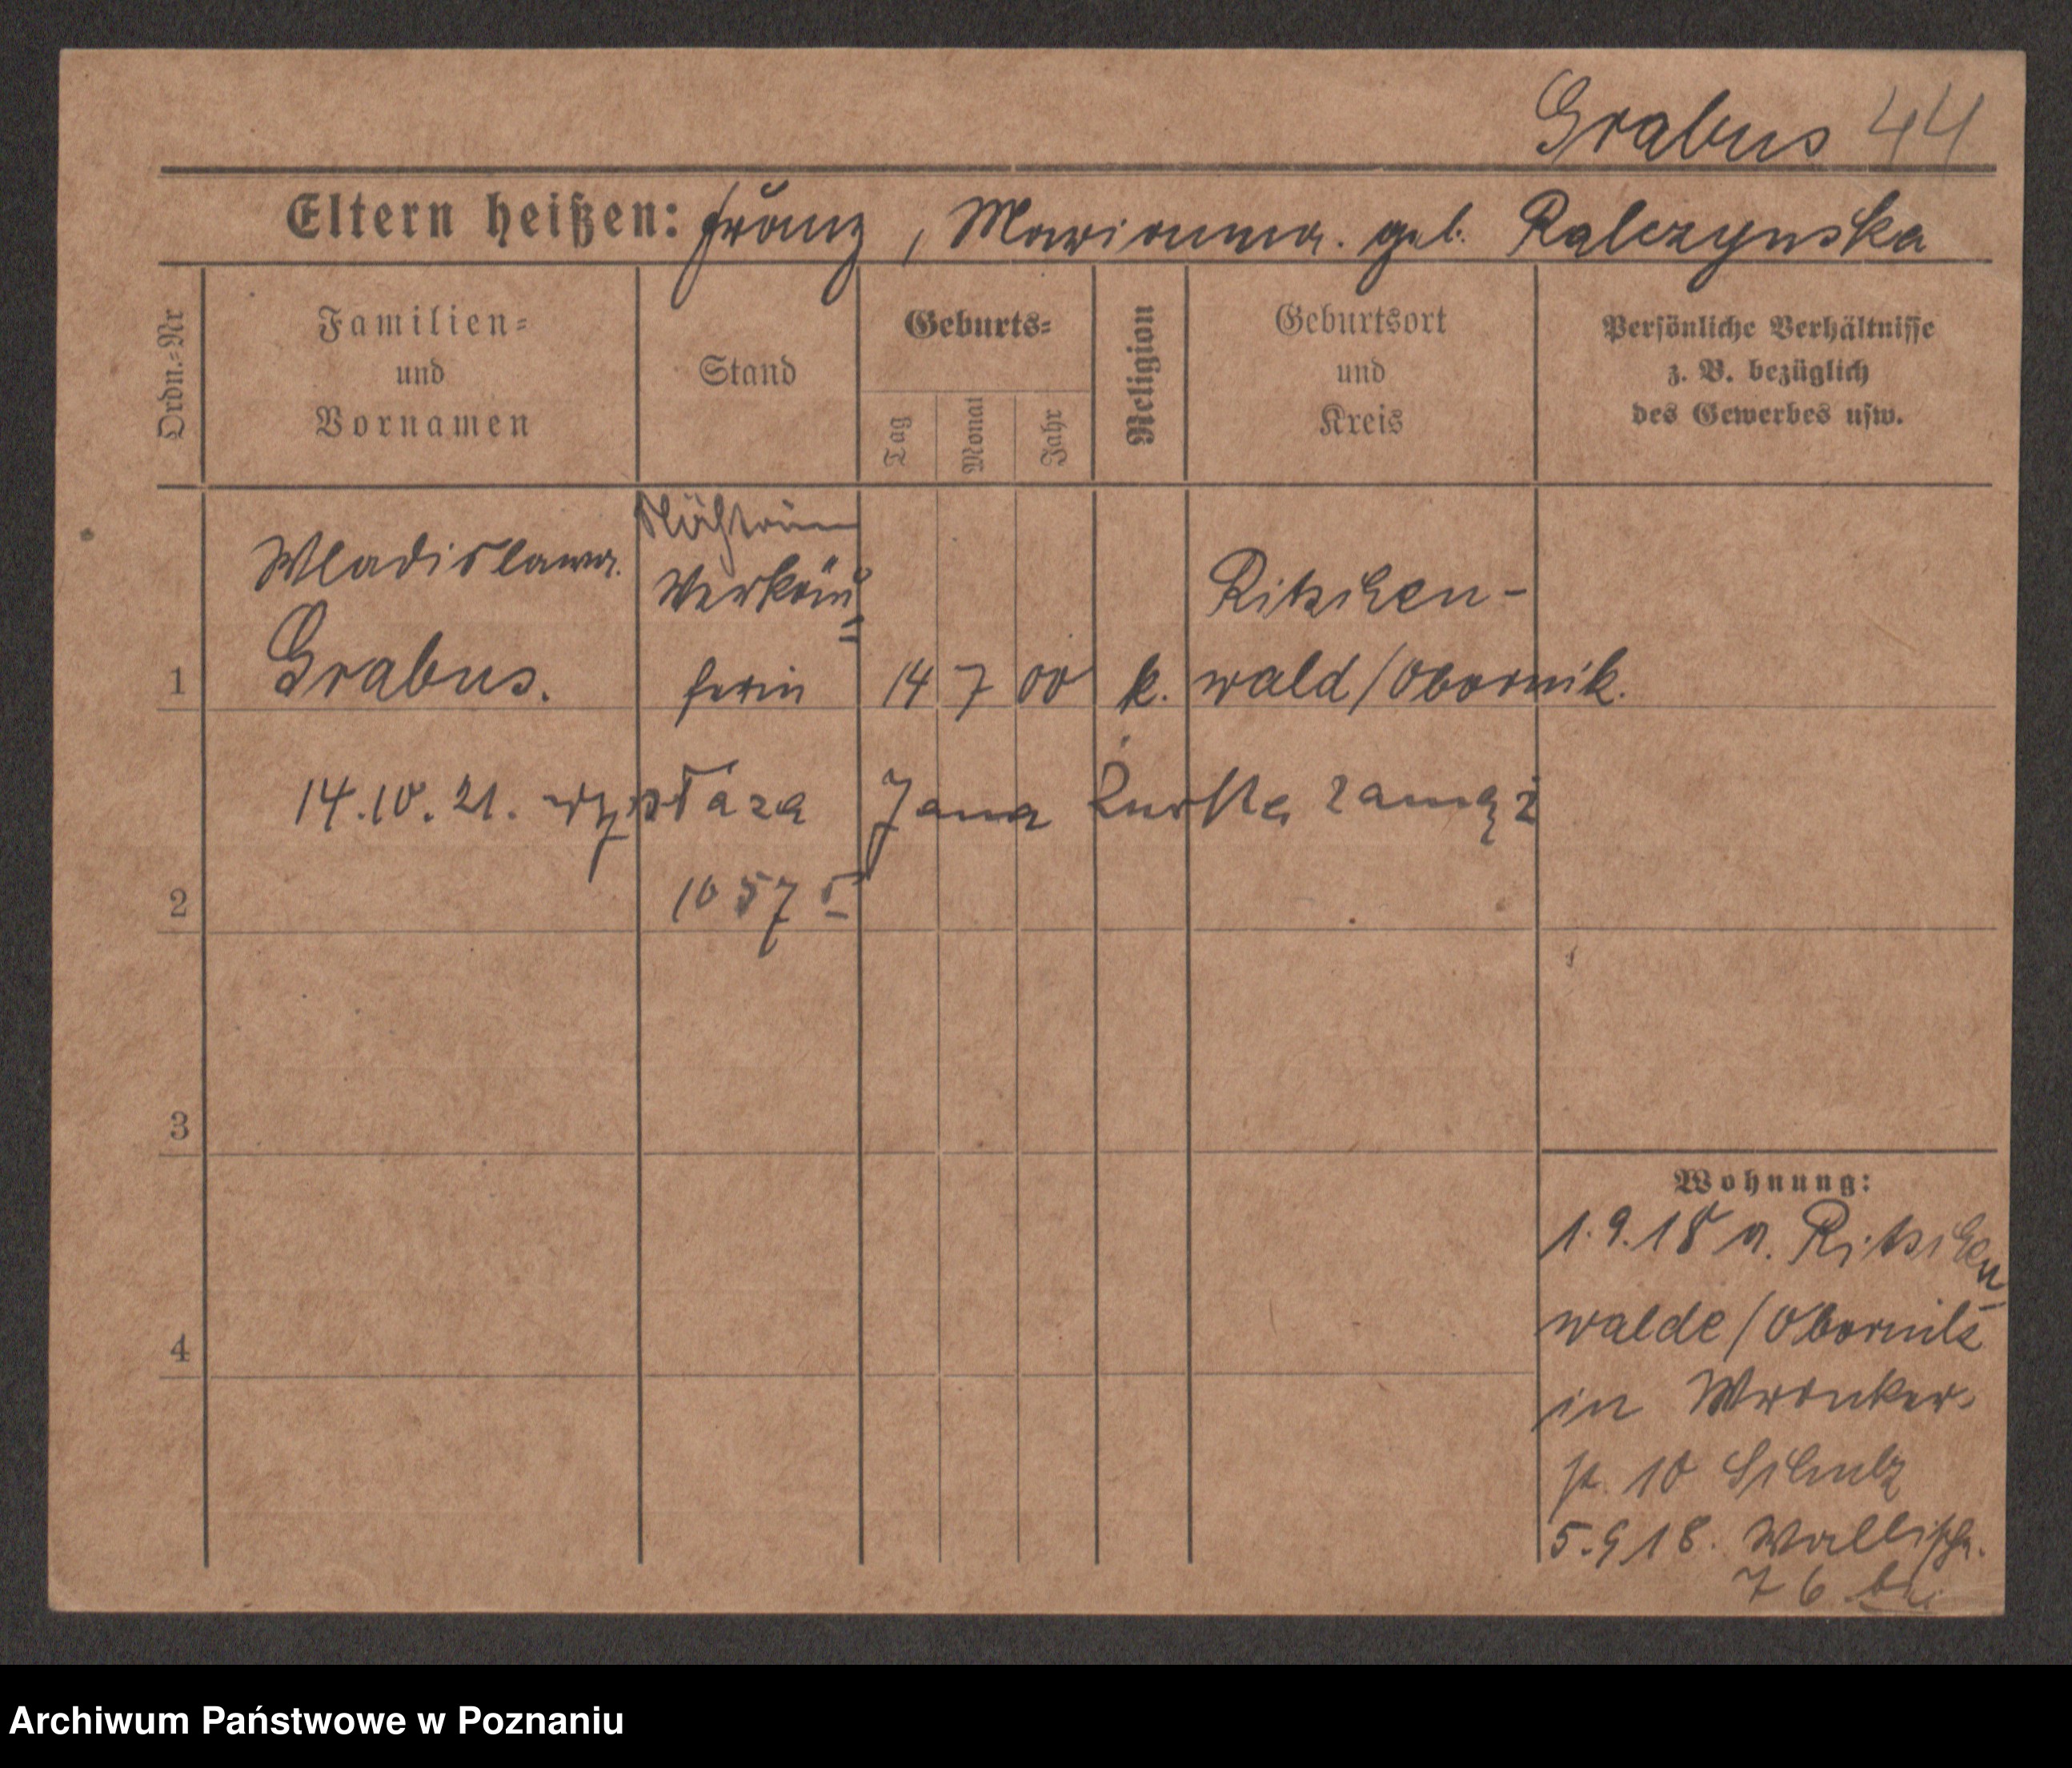 Grabus 44
Eltern heißen: Franz, Marianna geb. Ralczynska
Ordn.=Nr
Familien=
und
Vornamen
Stand
Geburts=
Tag
Monat
Jahr
Religion
Geburtsort
und
Kreis
Persönliche Verhältnisse
z. B. bezüglich
des Gewerbes usw.
Wladislawa
Grabus.
Verkäu=
ferin
14 7 00 k.
Ritschen-
wald/Obornik.
1
14.10.21. wyszła za Jana zamąż
1057
2
3
4
Wohnung:
1.9.18 a. Ritschen-
walde/Obornik
in Wronker-
st. 10 Schulz
5.9 18. Wallisch.
76
Archiwum Państwowe w Poznaniu